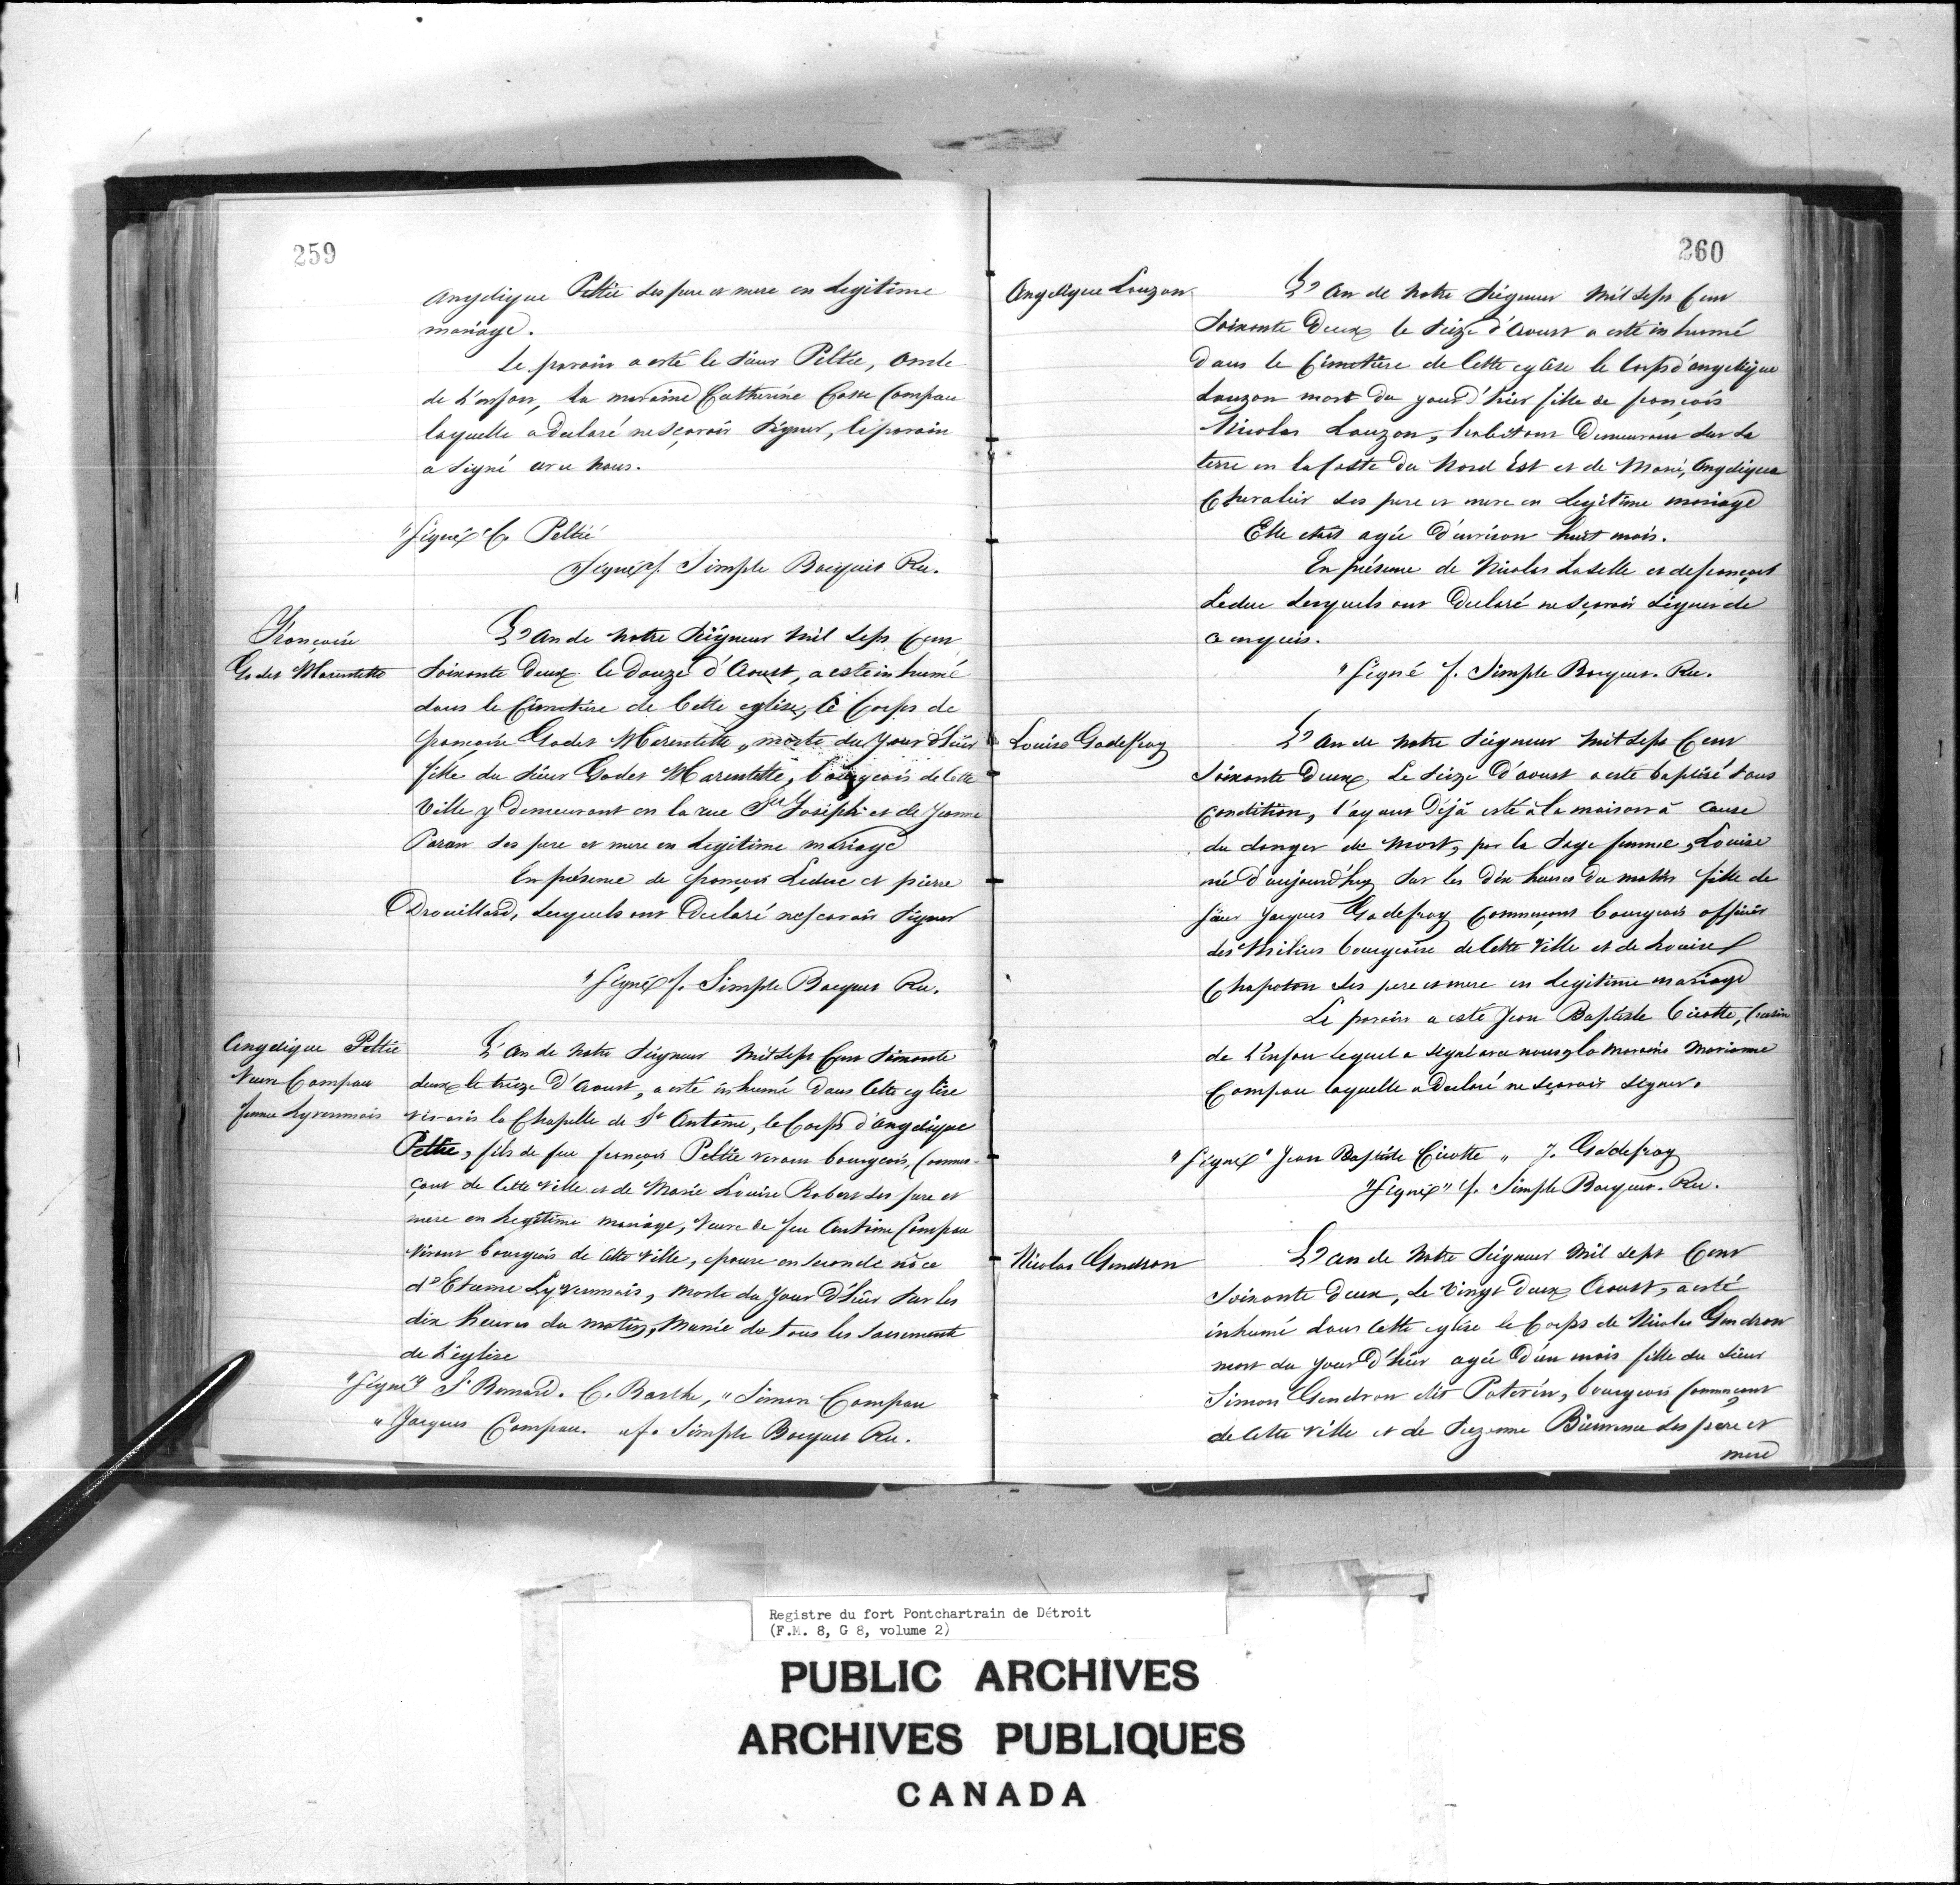 259
Angelique Peltié ses pere et mere en Legitime
mariage.
Le parain a esté le Sieur Peltié, oncle
de L'enfant, la maraine Catherine Casse Campau
laquelle a declaré ne sçavoir Signer, le parain
a signé avec nous.
"Signé" C. Peltié
"Signé" f. Simple Bocquet Rec.
Françoise
Godet Marentette
L'an de notre Seigneur mil Sept Cent
Soixante Deux le Douze d'Aoust, a esté inhumé
dans le Cimetière de Cette eglise, le Corps de
françoise Godet Marentette, morte du jour d'hier
fille du Sieur Godet Marentette, bourgeois de Cette
Ville y demeurant en la rue St Joseph et de Jeanne
Paran ses pere et mere en Legitime mariage
En présence de françois Leduc et pierre
Drouillard, Lesquels ont Declaré ne scavoir Signer
"Signé" f. Simple Bocquet Rec.
Angelique Peltié
Veuve Campau
femme Lyvernois
L'an de notre Seigneur Mil Sept Cent Soixante
deux le treize d'Aoust, a esté inhumé dans Cette eglise
vis-avis la Chapelle de St Antoine, le Corps d'angelique
Peltié, fils de feu françois Peltié vivant bourgeois, Commer-
çant de Cette ville et de Marie Louise Robert ses pere et
mere en Legitime mariage, Veuve de feu Antoine Campau
Vivant bourgeois de Cette Ville, epouse en seconde nôce
d'Etienne Lyvernois, morte du Jour D'hier sur les
dix heures du matin, Munie de tous les Sacremente
de L'église
"Signé" S. Bernard. C. Barthe, "Simon Campau
"Jacques Campau. "f. Simple Bocquet Rec.
260
Angelique Lauzon
L'an de Notre Seigneur Mil Sept Cent
Soixante Deux le Seize d'Aoust a esté inhumé
dans le Cimetière de Cette eglise le Corps d'angelique
Lauzon mort du jour d'hier fille de françois
Nicolas Lauzon, habitant Demeurant sur sa
terre en la Coste du Nord Est et de Marie, Angelique
Chevalier ses pere et mere en Legitime mariage
Elle etait agée D'environ huit mois.
En présence de Nicolas Laselle et de françois
Leduc Lesquels ont Declaré ne sçavoir Signer de
ce enquis.
"Signé f. Simple Bocquet. Rec.
Louise Godefroy
L'an de notre Seigneur Mil Sept Cent
Soixante Deux, Le Seize D'aoust a esté baptisé sous
Condition, l'ayant Déjà esté à la maison à Cause
du danger de Mort, par la Sage femme, Louise
née d'aujourd'huy sur les dix heures du matin fille de
Sieur Jacques Godefroy Commerçant bourgeois officier
des Milices bourgeoise de Cette Ville et de Louise
Chapoton ses pere et mere en Legitime mariage
Le parain a esté Jean Baptiste Cicotte, Cousin
de L'enfant lequel a signé avec nous, la Maraine Marianne
Campau laquelle a Declaré ne sçavoir signer.
"Signé" Jean Baptiste Cicotte " J. Godefroy
"Signé" f. Simple Bocquet. Rec.
Nicolas Gendron
L'an de Notre Seigneur Mil sept Cent
Soixante deux, Le Vingt Deux Aoust, a esté
inhumé dans Cette eglise le Corps de Nicolas Gendron
mort du jour D'hier agée D'un mois fille du Sieur
Simon Gendron dit Potevin, bourgeois Commerçant
de Cette Ville et de Suzanne Bienvenue ses pere et
mere
Registre du fort Pontchartrain de Détroit
(F.M. 8, G 8, volume 2)
PUBLIC ARCHIVES
ARCHIVES PUBLIQUES
CANADA